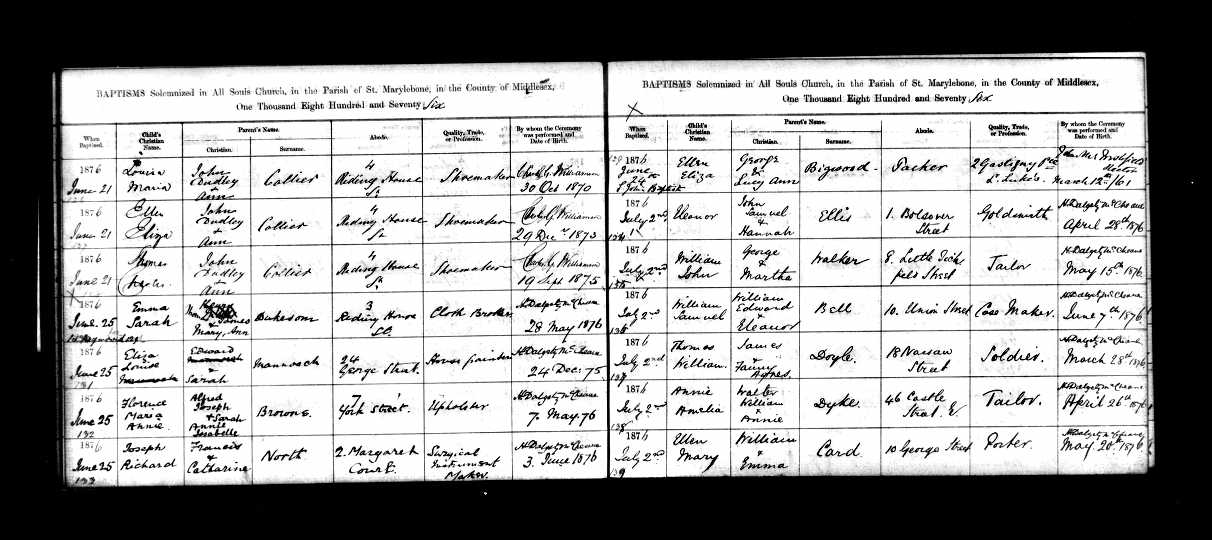 BAPTISMS Solemnized in All Souls Church, in the Parish of St. Marylebone, in the County of Middlesex,
One Thousand Eight Hundred and Seventy Six
When Baptised.
Child's Christian Name.
Parent's Name.
Christian.
Surname.
Abode.
Quality, Trade, or Profession.
By whom the Ceremony was performed and Date of Birth.
1876
June 21
Louisa
Maria
John
Dudley
&
Ann
Collier
4
Riding House
St
Shoemaker
30 Oct 1870
1876
June 21
Ellen
Eliza
John
Dudley
&
Ann
Collier
4
Riding House
St
Shoemaker
29 Decr 1873
1876
June 21
Thomas
John
Dudley
&
Ann
Collier
4
Riding House
St
Shoemaker
19 Sept 1875
1876
June 25
Emma
Sarah
&
Mary Ann
3
Riding House
St
28 May 1876
1876
June 25
131
Eliza
Louise
Edward
&
Sarah
24
George Street
House painter
24 Dec: 75
1876
June 25
132
Florence
Maria
Annie
Alfred
Joseph
& Sarah
Annie
Isabelle
Browne
7
York Street
Upholster
7. May 76
1876
June 25
133
Joseph
Richard
Francis
&
Catharine
North
2. Margaret
Court
Surgical
Instrument
Maker
3. June 1876
BAPTISMS Solemnized in All Souls Church, in the Parish of St. Marylebone, in the County of Middlesex,
One Thousand Eight Hundred and Seventy Six
When Baptised.
Child's Christian Name.
Parent's Name.
Christian.
Surname.
Abode.
Quality, Trade, or Profession.
By whom the Ceremony was performed and Date of Birth.
1876
June
Ellen
Eliza
George
&
Lucy Ann
Bigwood
Packer
March 12th /61
1876
July 2nd
134
Eleonor
John
Samuel
&
Hannah
Ellis
1. Bolsover
Street
Goldsmith
April 28th 1876
1876
July 2nd
135
William
John
George
&
Martha
Walker
8. Little
Street
Tailor
May 15th 1876
1876
July 2nd
136
William
Samuel
William
Edward
&
Eleanor
Bell
10. Union Street
Case Maker
June 7th 1876
1876
July 2nd
137
Thomas
William
James
&
Fanny
Agnes
Doyle
18 Nassau
Street
Soldier
March 28th 1876
1876
July 2nd
138
Annie
Amelia
Walter
William
&
Annie
Dyke
46 Castle
Street E
Tailor
April 26th 1876
1876
July 2nd
139
Ellen
Mary
William
&
Emma
Card
10 George Street
Porter
May 20th 1876